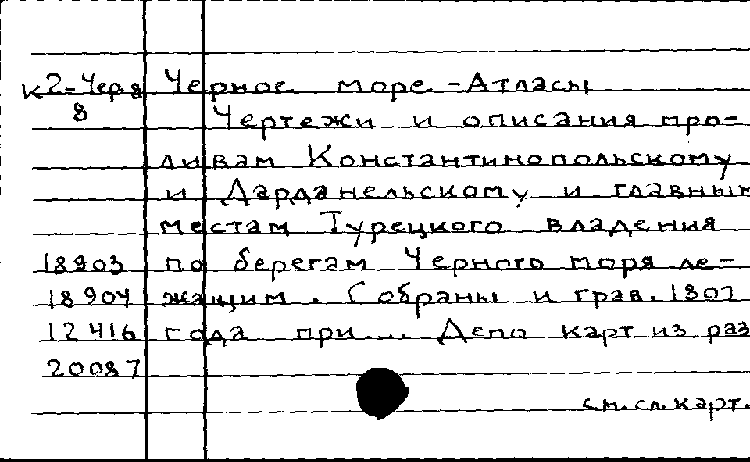 К2-Черя Черное море - Атласы
8 Чертежи и описания про-
ливам Константинопольскому
и Дарданельскому и главным
местам Турецкого владения
18903 по берегам Черного моря ле-
18904 жащим. Собраны и грав. 1807
12416 года при... Депо карт из раз
20087
см. сл. карт.